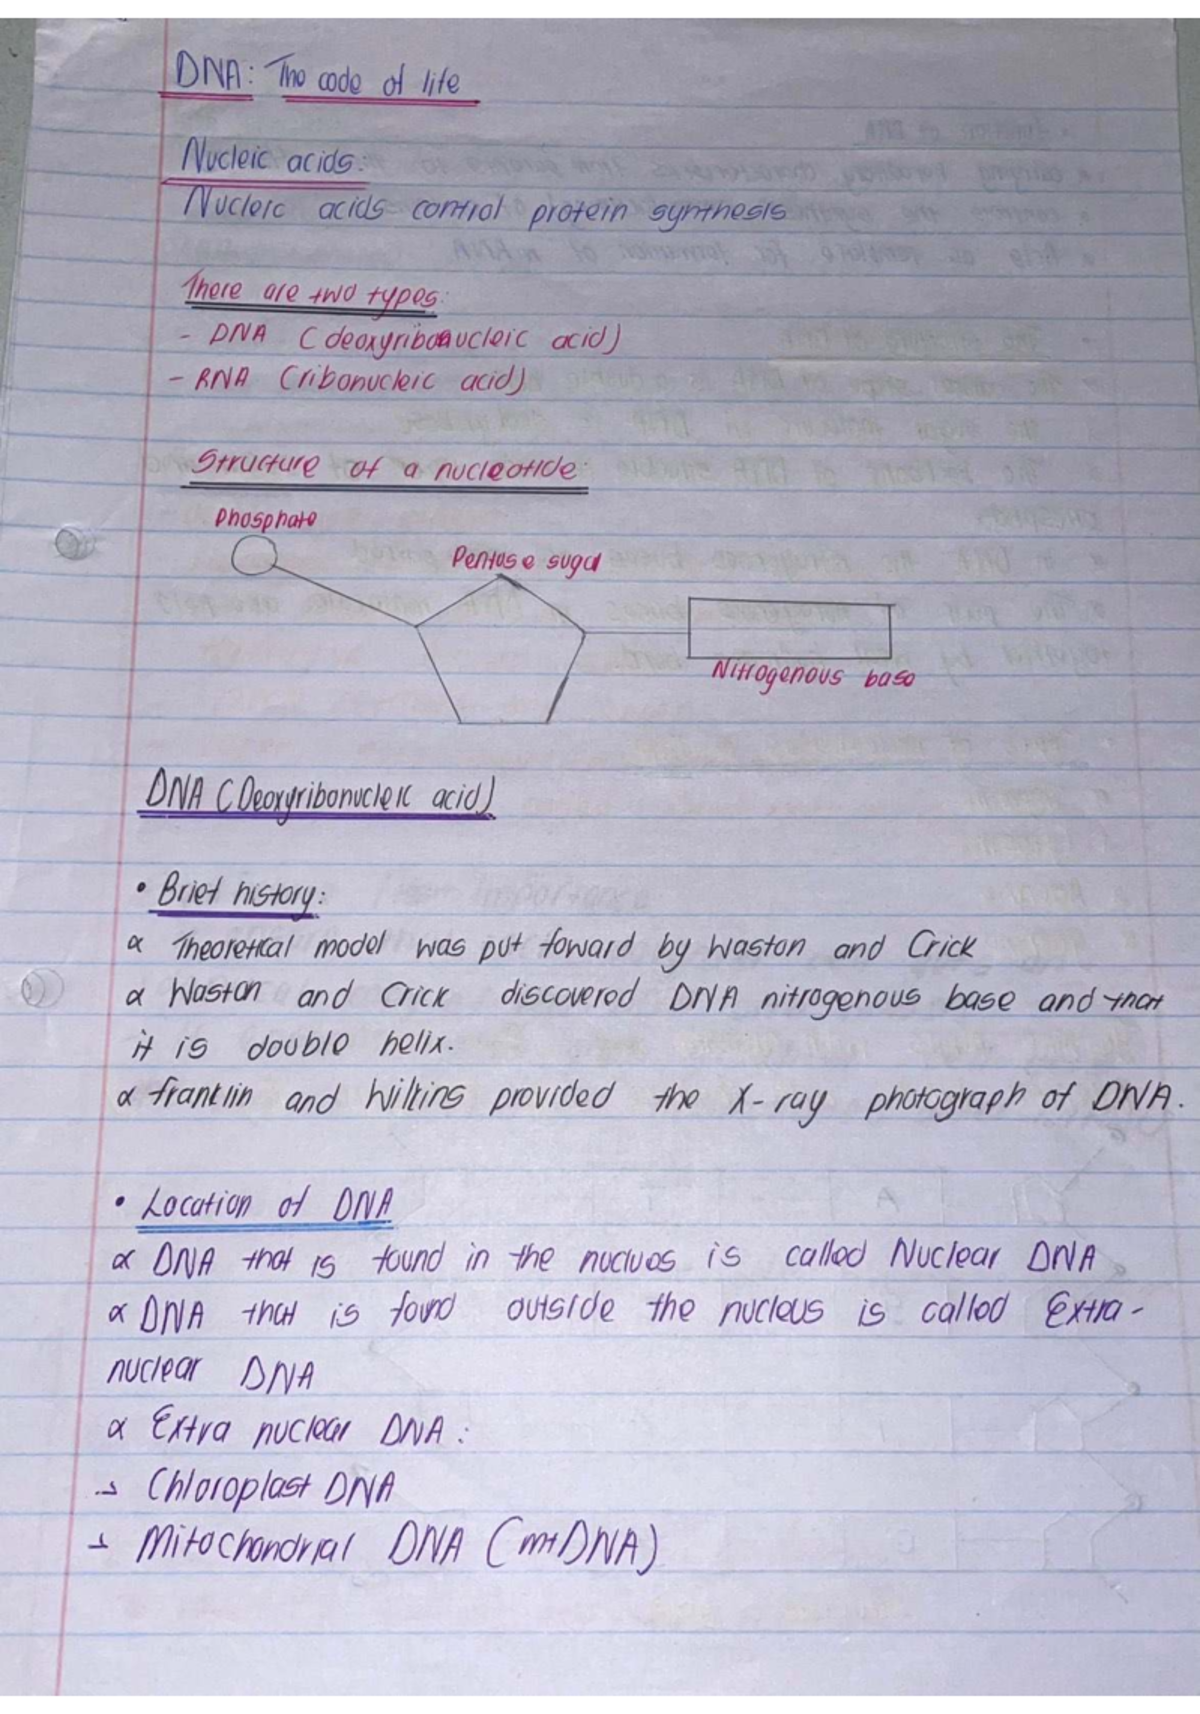 DNA: The code of life
Nucleic acids:
Nucleic acids control protein synthesis
There are two types:
- DNA (deoxyribonucleic acid)
- RNA (ribonucleic acid)
Structure of a nucleotide:
Phosphate
Pentose sugar
Nitrogenous base
DNA (Deoxyribonucleic acid)
• Brief history:
α Theoretical model was put foward by Waston and Crick
α Waston and Crick discovered DNA nitrogenous base and that
it is double helix.
α franklin and Wilkins provided the X-ray photograph of DNA.
• Location of DNA
α DNA that is found in the nucluos is called Nuclear DNA
α DNA that is found outside the nucleus is called Extra-
nuclear DNA
α Extra nuclear DNA:
→ Chloroplast DNA
→ Mitochondrial DNA (mtDNA)